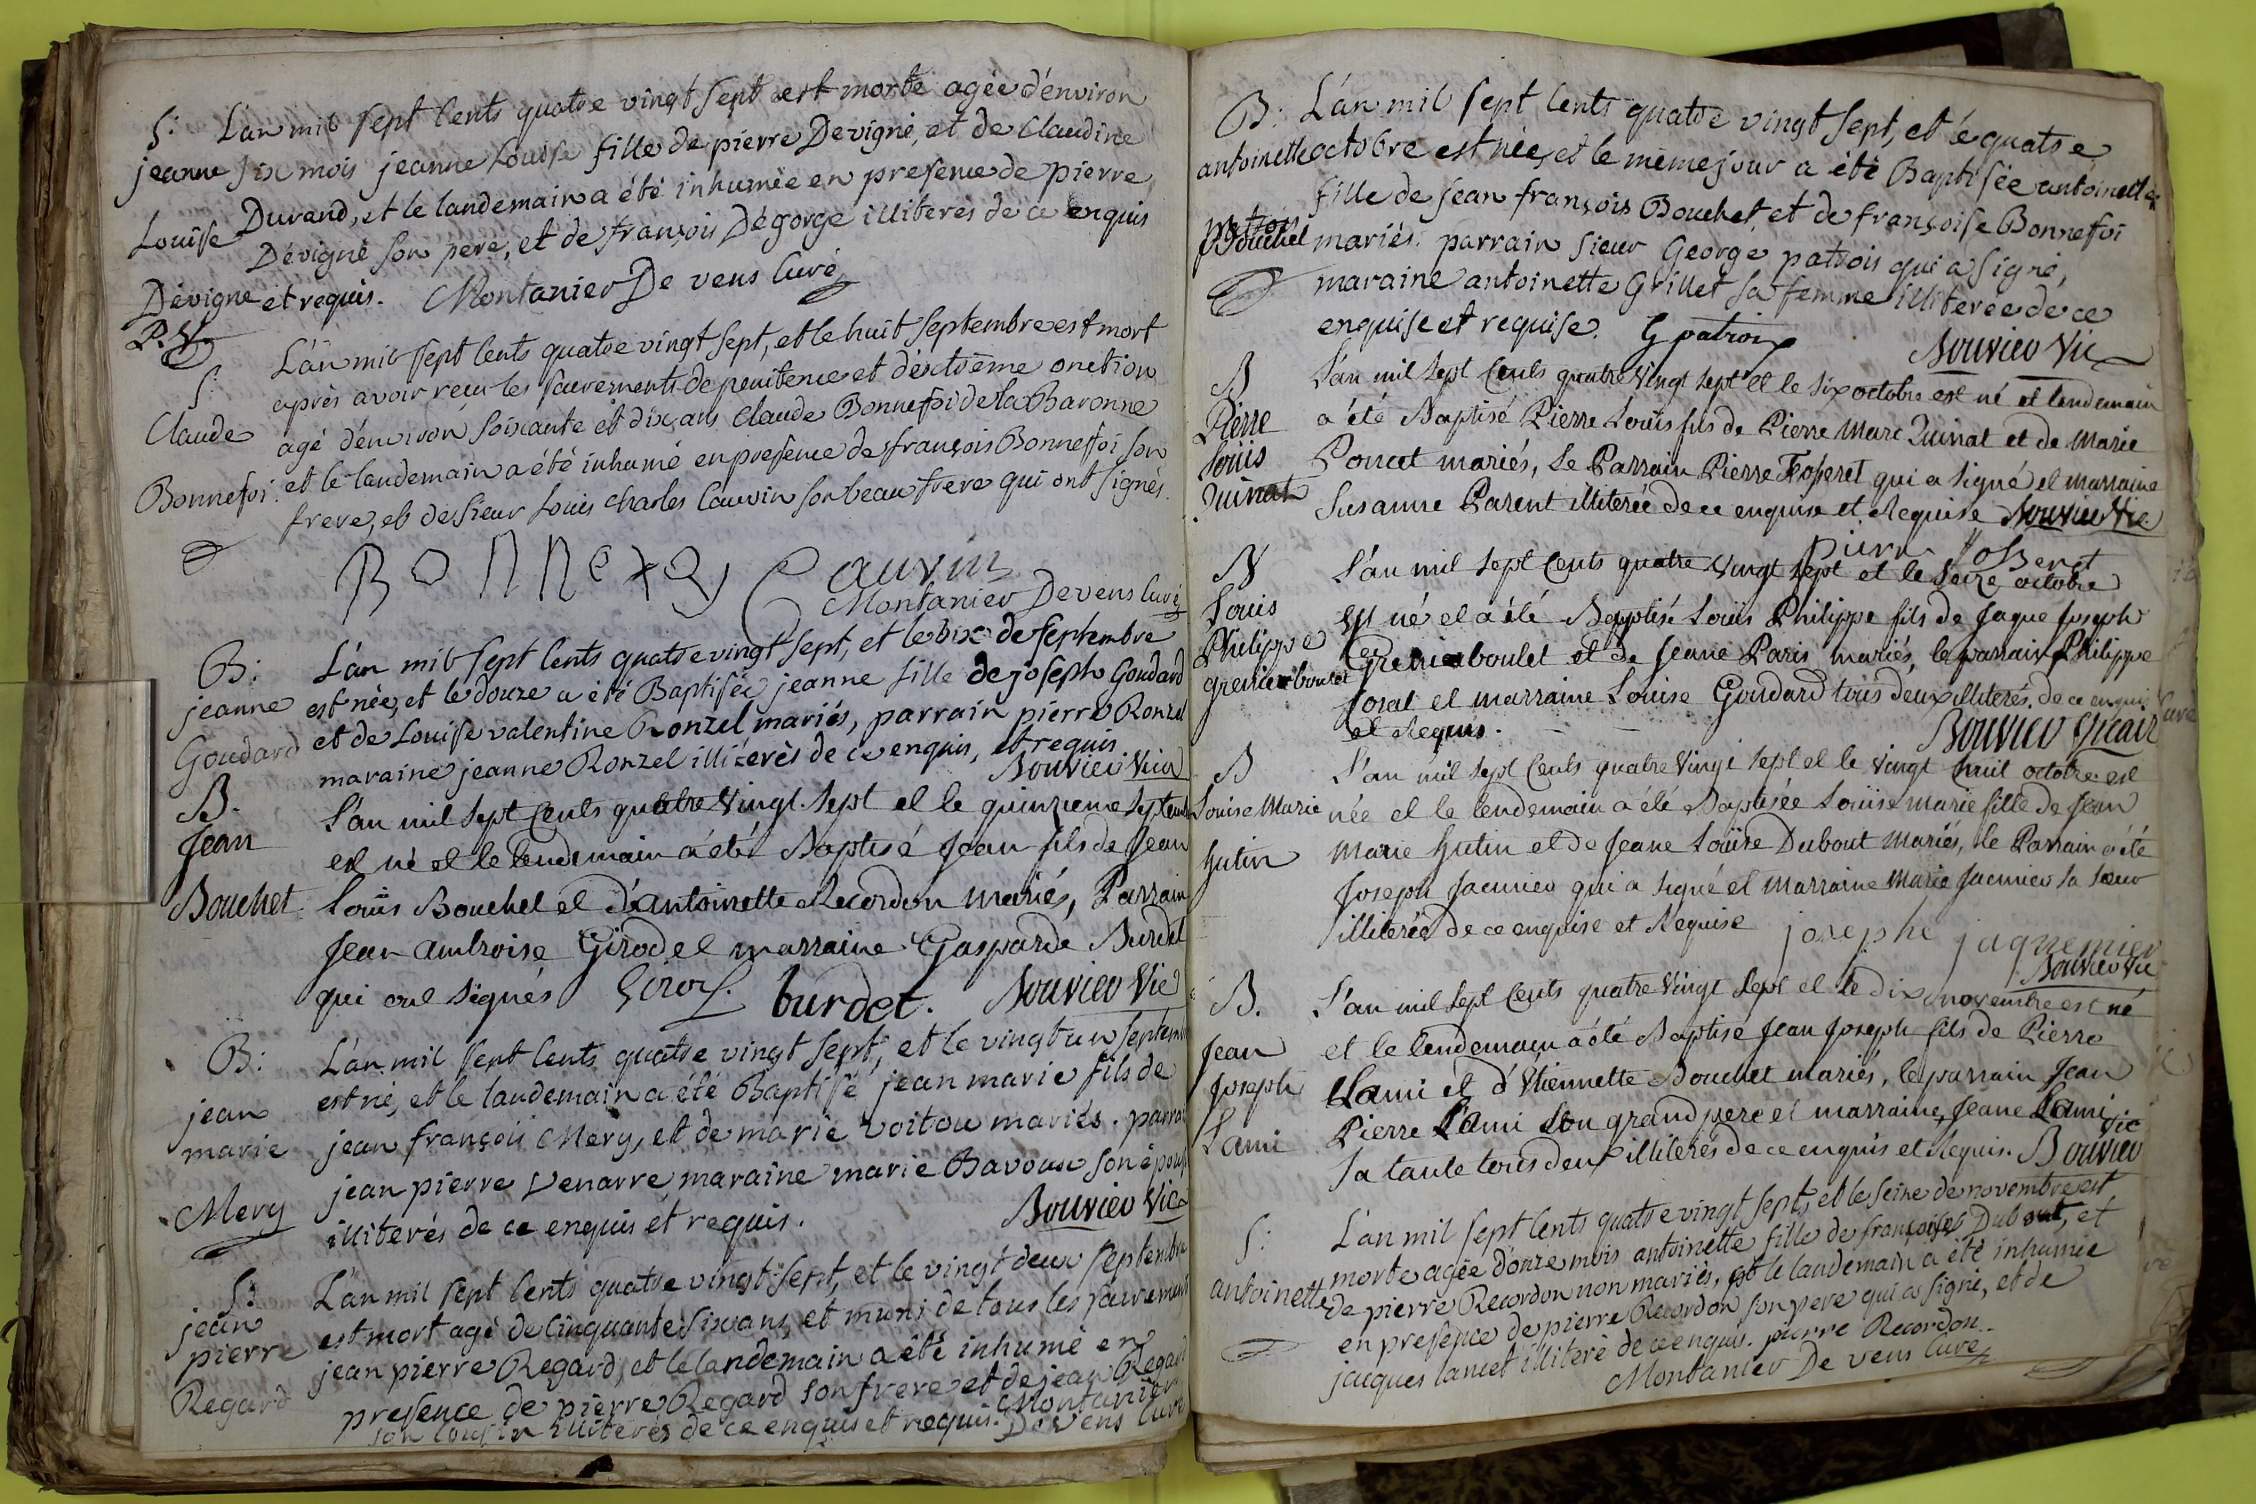 S: L'an mil sept cents quatre vingt sept est morte agée d'environ
jeanne six mois jeanne Louise fille de pierre Devigne, et de Claudine
Louise Durand, et le landemain a été inhumée en presence de pierre
Dévigne son pere, et de françois Dégorge illiterés de ce enquis
Dévigne et requis. Montanier De vens Curé
P. V.
S: L'an mil sept cents quatre vingt sept, et le huit septembre est mort
après avoir reçu les sacrements de penitence et d'extrême onction
Claude agé d'environ soixante et dix ans Claude Bonnefoi de la Baronne
Bonnefoi et le landemain a été inhumé en presence de françois Bonneffoi son
frere, et de sieur Louis Charles Cauvin son beau frere qui ont signés.
Cauvin
Montanier De vens Curé
B: L'an mil sept cents quatre vingt sept, et le dix de septembre
jeanne est née, et le douze a été Baptisée jeanne fille de joseph Goudard
Goudard et de Louise valentine Ronzel mariés, parrain pierre Ronzel
maraine jeanne Ronzel illiterés de ce enquis, et requis.
Bouvier Vica
B. L'an mil sept Cents quatre Vingt sept et le quinzieme septemb
Jean est né et le lendemain a été Baptisé Jean fils de Jean
Bouchet Loüis Bouchet et d'antoinette Recordon mariés, Parrain
Jean ambroise Girod et marraine Gasparde Burdet
qui ont signés Girod. burdet. Bouvier Vic
B: L'an mil sept cents quatre vingt sept, et le vingt un septem
jean est né, et le landemain a été Baptisé jean marie fils de
marie jean françois Mery, et de marie voitou mariés. parra
Mery jean pierre Venarre maraine marie Bavoux son épous
illiterés de ce enquis et requis. Bouvier Vic
S: L'an mil sept cents quatre vingt sept, et le vingt deux septembre
jean est mort agé de Cinquante six ans, et muni de tous les sacrement
pierre jean pierre Regard, et le landemain a été inhumé en
Regard presence de pierre Regard son frere et de jean Regard
son cousin illiterés de ce enquis et requis. Montanier
De vens Curé
B: L'an mil sept cents quatre vingt sept, et le quatre
antoinette octobre est née, et le même jour a été Baptisée antoinette
fille de jean françois Bouchet, et de françoise Bonneffoi
Bouchet mariés. parrain sieur George patrois qui a signé,
maraine antoinette Grillet sa femme illiterée de ce
enquise et requise. G patrois Bouvier Vic
B L'an mil sept Cents quatre Vingt sept et le six octobre est né et lendemain
Pierre a été Baptisé Pierre Louis fils de Pierre Marc Quinat et de Marie
Louis Poncet mariés, Le Parrain Pierre Jossseret qui a signé et marraine
Quinat Susanne Parent illiterée de ce enquise et Requise Bouvier Vic
Pierre
N L'an mil sept Cents quatre Vingt sept et le seize octobre
Louis est né et a été Baptisé Loüis Philippe fils de Jaque Joseph
Philippe Grenierboulet et de Jeane Paris mariés, le parrain Philippe
grenierboulet Jorat et marraine Louise Goudard tous deux illiterés, de ce enquis
et Requis. Bouvier Vicair
B L'an mil sept Cents quatre Vingt sept et le Vingt huit octobre est
Louise Marie née et le lendemain a été Baptisée Loüise marie fille de Jean
hutin Marie hutin et de Jeane Loüise Dubout Mariés, Le Parrain a été
Joseph Jacmier qui a signé et marraine Marie Jacmier sa sœur
illiterée de ce enquise et Requise josephe jaquemier
Bouvier Vic
B. L'an mil sept Cents quatre Vingt sept et le dix novembre est né
Jean et le lendemain a été Baptisé Jean Joseph fils de Pierre
Joseph Lami et d'Etiennette Bouchet mariés, le parrain Jean
Lami Pierre Lami son grand pere et marraine, Jeane Lami
sa tante tous deux illiterés de ce enquis et Requis. Bouvier Vic
S: L'an mil sept cents quatre vingt sept, et le seise de novembre est
morte agée d'onze mois antoinette fille de françoise Dubout, et
antoinette de pierre Recordon non mariés, et le landemain a été inhumée
en presence de pierre Recordon son pere qui a signé, et de
jacques lancet illiteré de ce enquis. pierre Recordon
Montanier De vens Curé